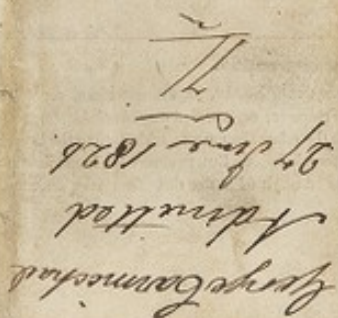 George Carmichael
Admitted
27 June 1826